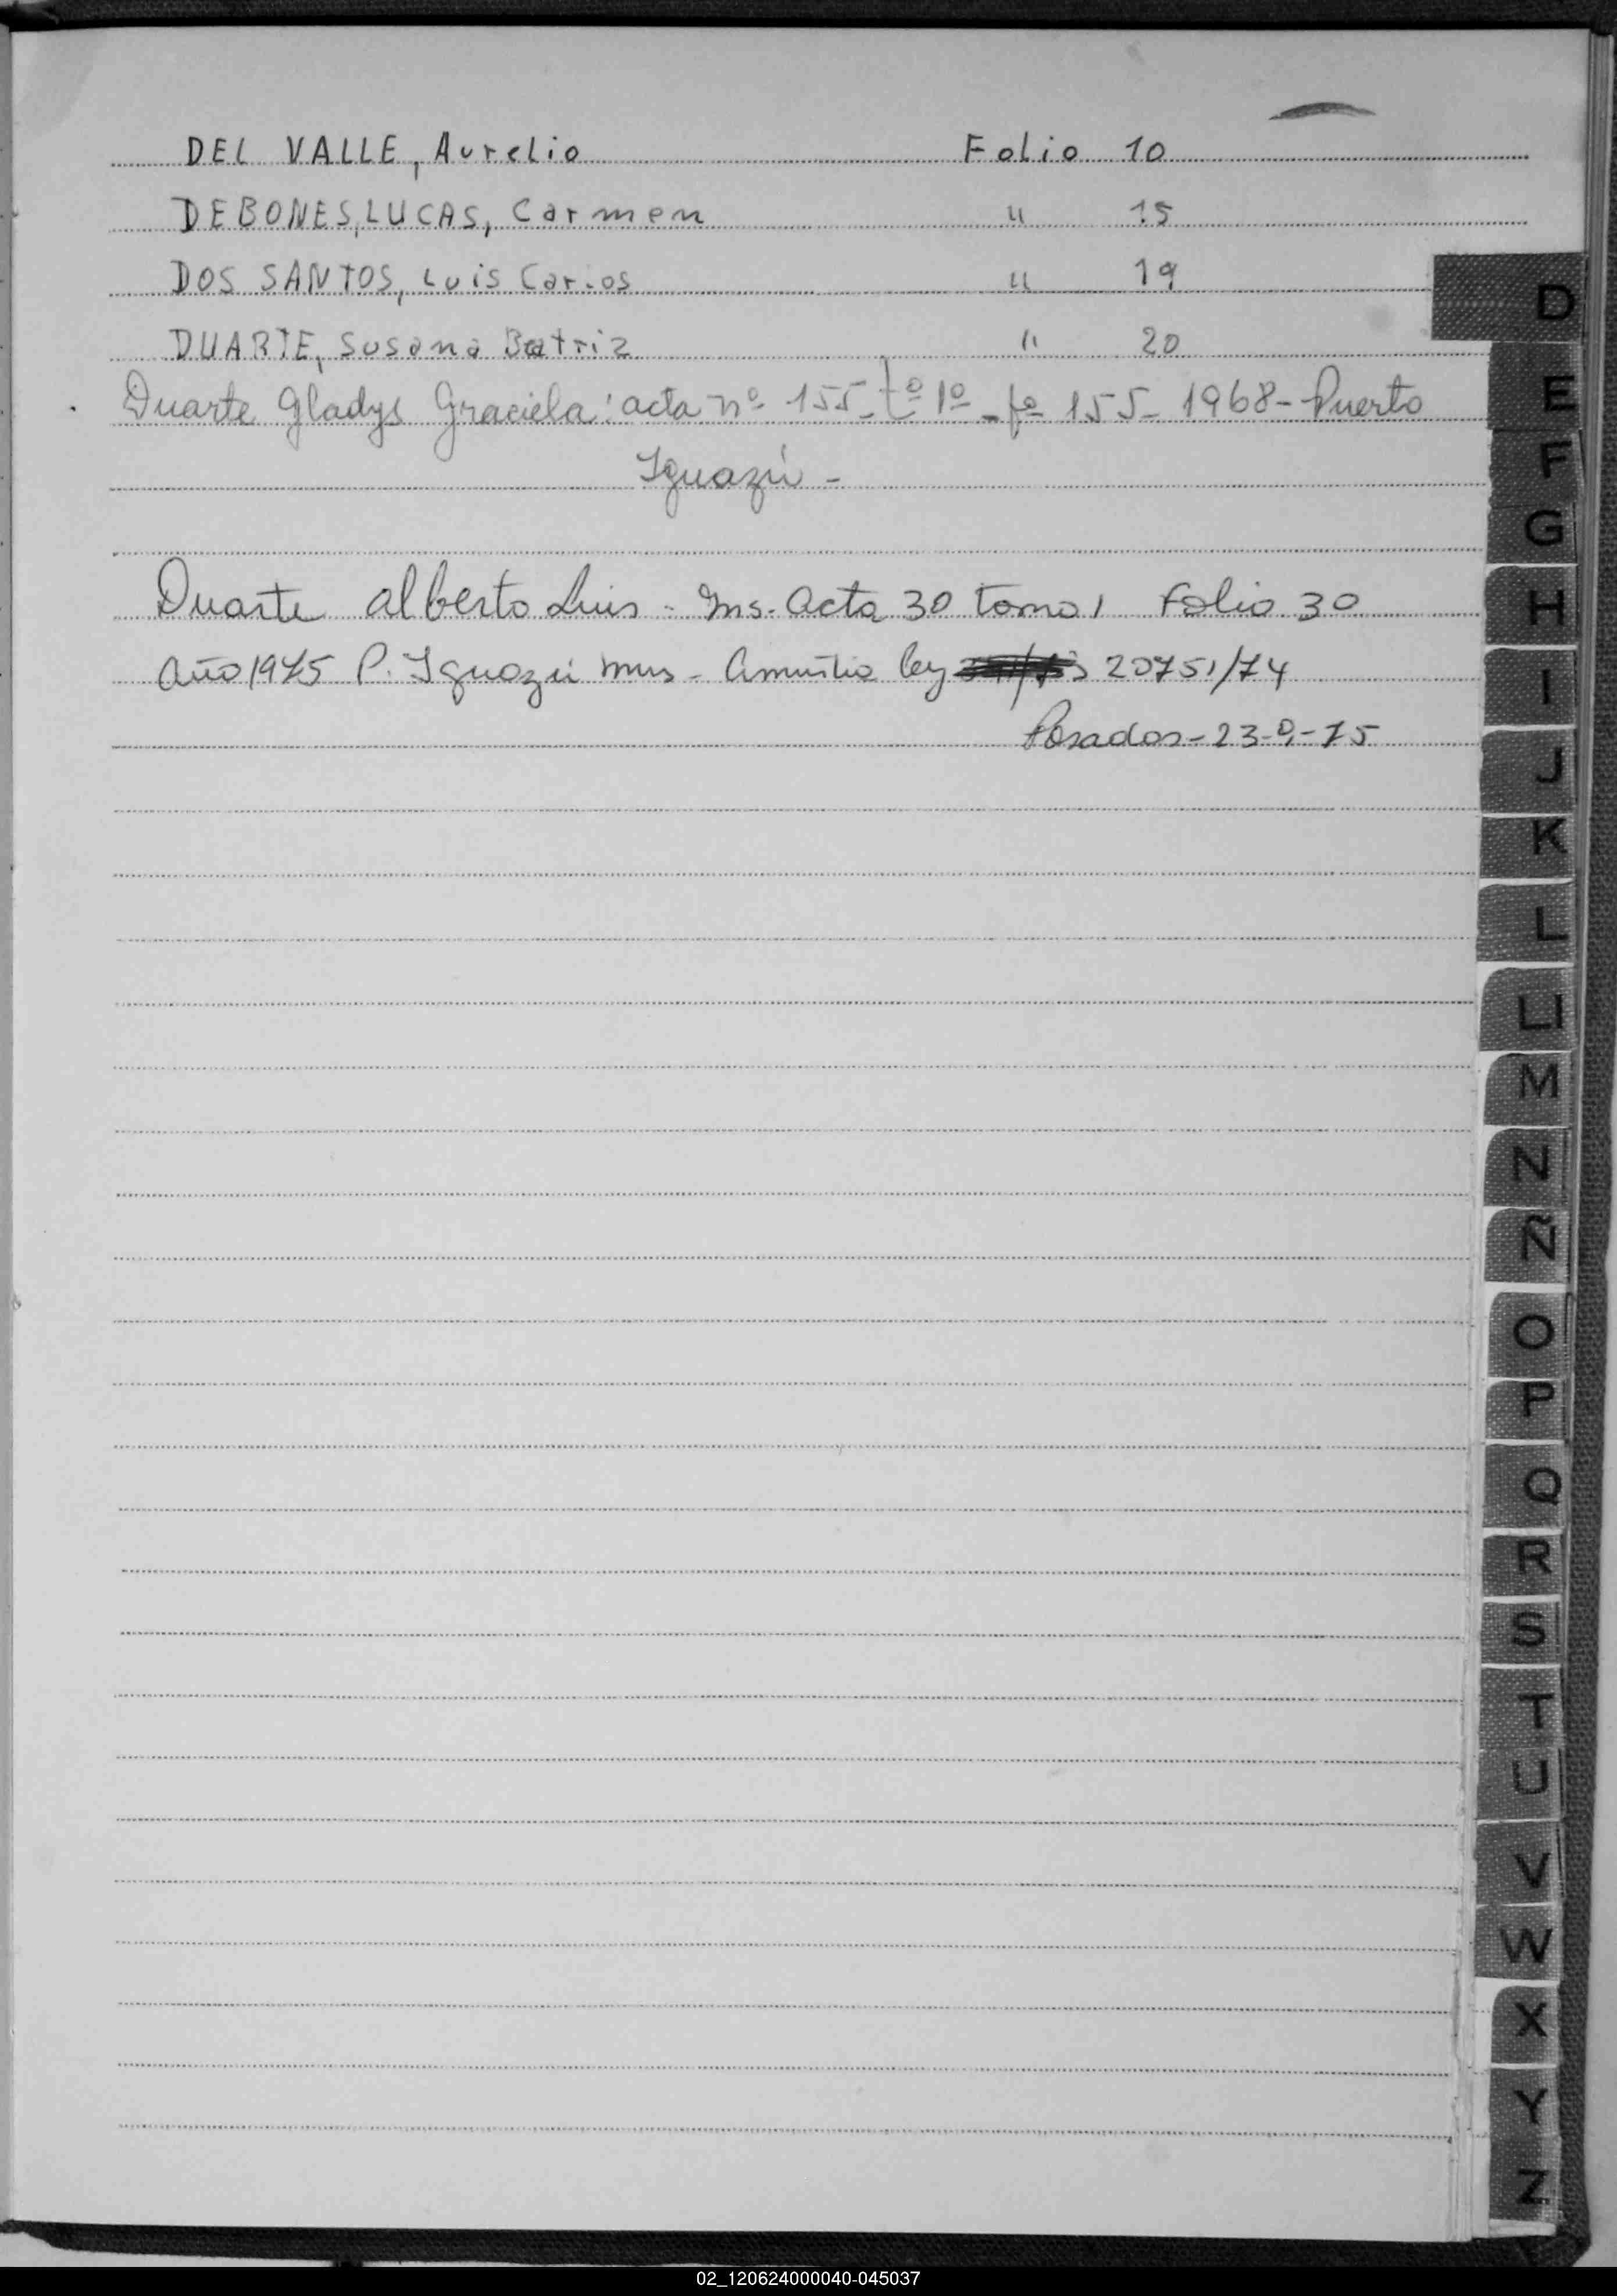 DEL VALLE, Aurelio Folio 10
DEBONES, LUCAS, Carmen " 15
DOS SANTOS, Luis Carlos " 19
DUARTE, Susana Beatriz " 20
Duarte Gladys Graciela: acta nº 155- tº 1º - fº 155- 1968- Puerto
Iguazú -
Duarte Alberto Luis - Ins. Acta 30 tomo 1 Folio 30
Año 1975 P. Iguazú Mns - Amnistia ley 20751/74
Posadas - 23- -75
D
E
F
G
H
I
J
K
L
LL
M
N
Ñ
O
P
Q
R
S
T
U
V
W
X
Y
Z
02_120624000040-045037